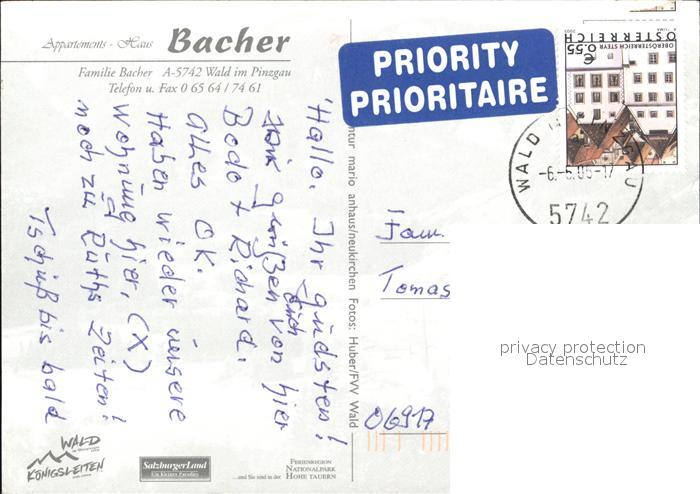 Appartements - Haus Bacher
Familie Bacher A-5742 Wald im Pinzgau
Telefon u. Fax 0 65 64 / 74 61
PRIORITY
PRIORITAIRE
OBERÖSTERREICH STEYR
€ 0,55
ÖSTERREICH
WALD
GAU
-6.-5.05-17
5742
Hallo, Ihr güdsten!
grüßen Euch von hier
Bodo + Richard.
Alles OK.
Haben wieder unsere
Wohnung hier, (X)
noch zu Ruths Zeiten!
Tschüß bis bald
mario anhaus/neukirchen Fotos: Huber/FVV Wald
Fam.
Tomas
06917
privacy protection
Datenschutz
WALD
KÖNIGSLEITEN
SalzburgerLand
Ein kleines Paradies
...und Sie sind in der
FERIENREGION
NATIONALPARK
HOHE TAUERN